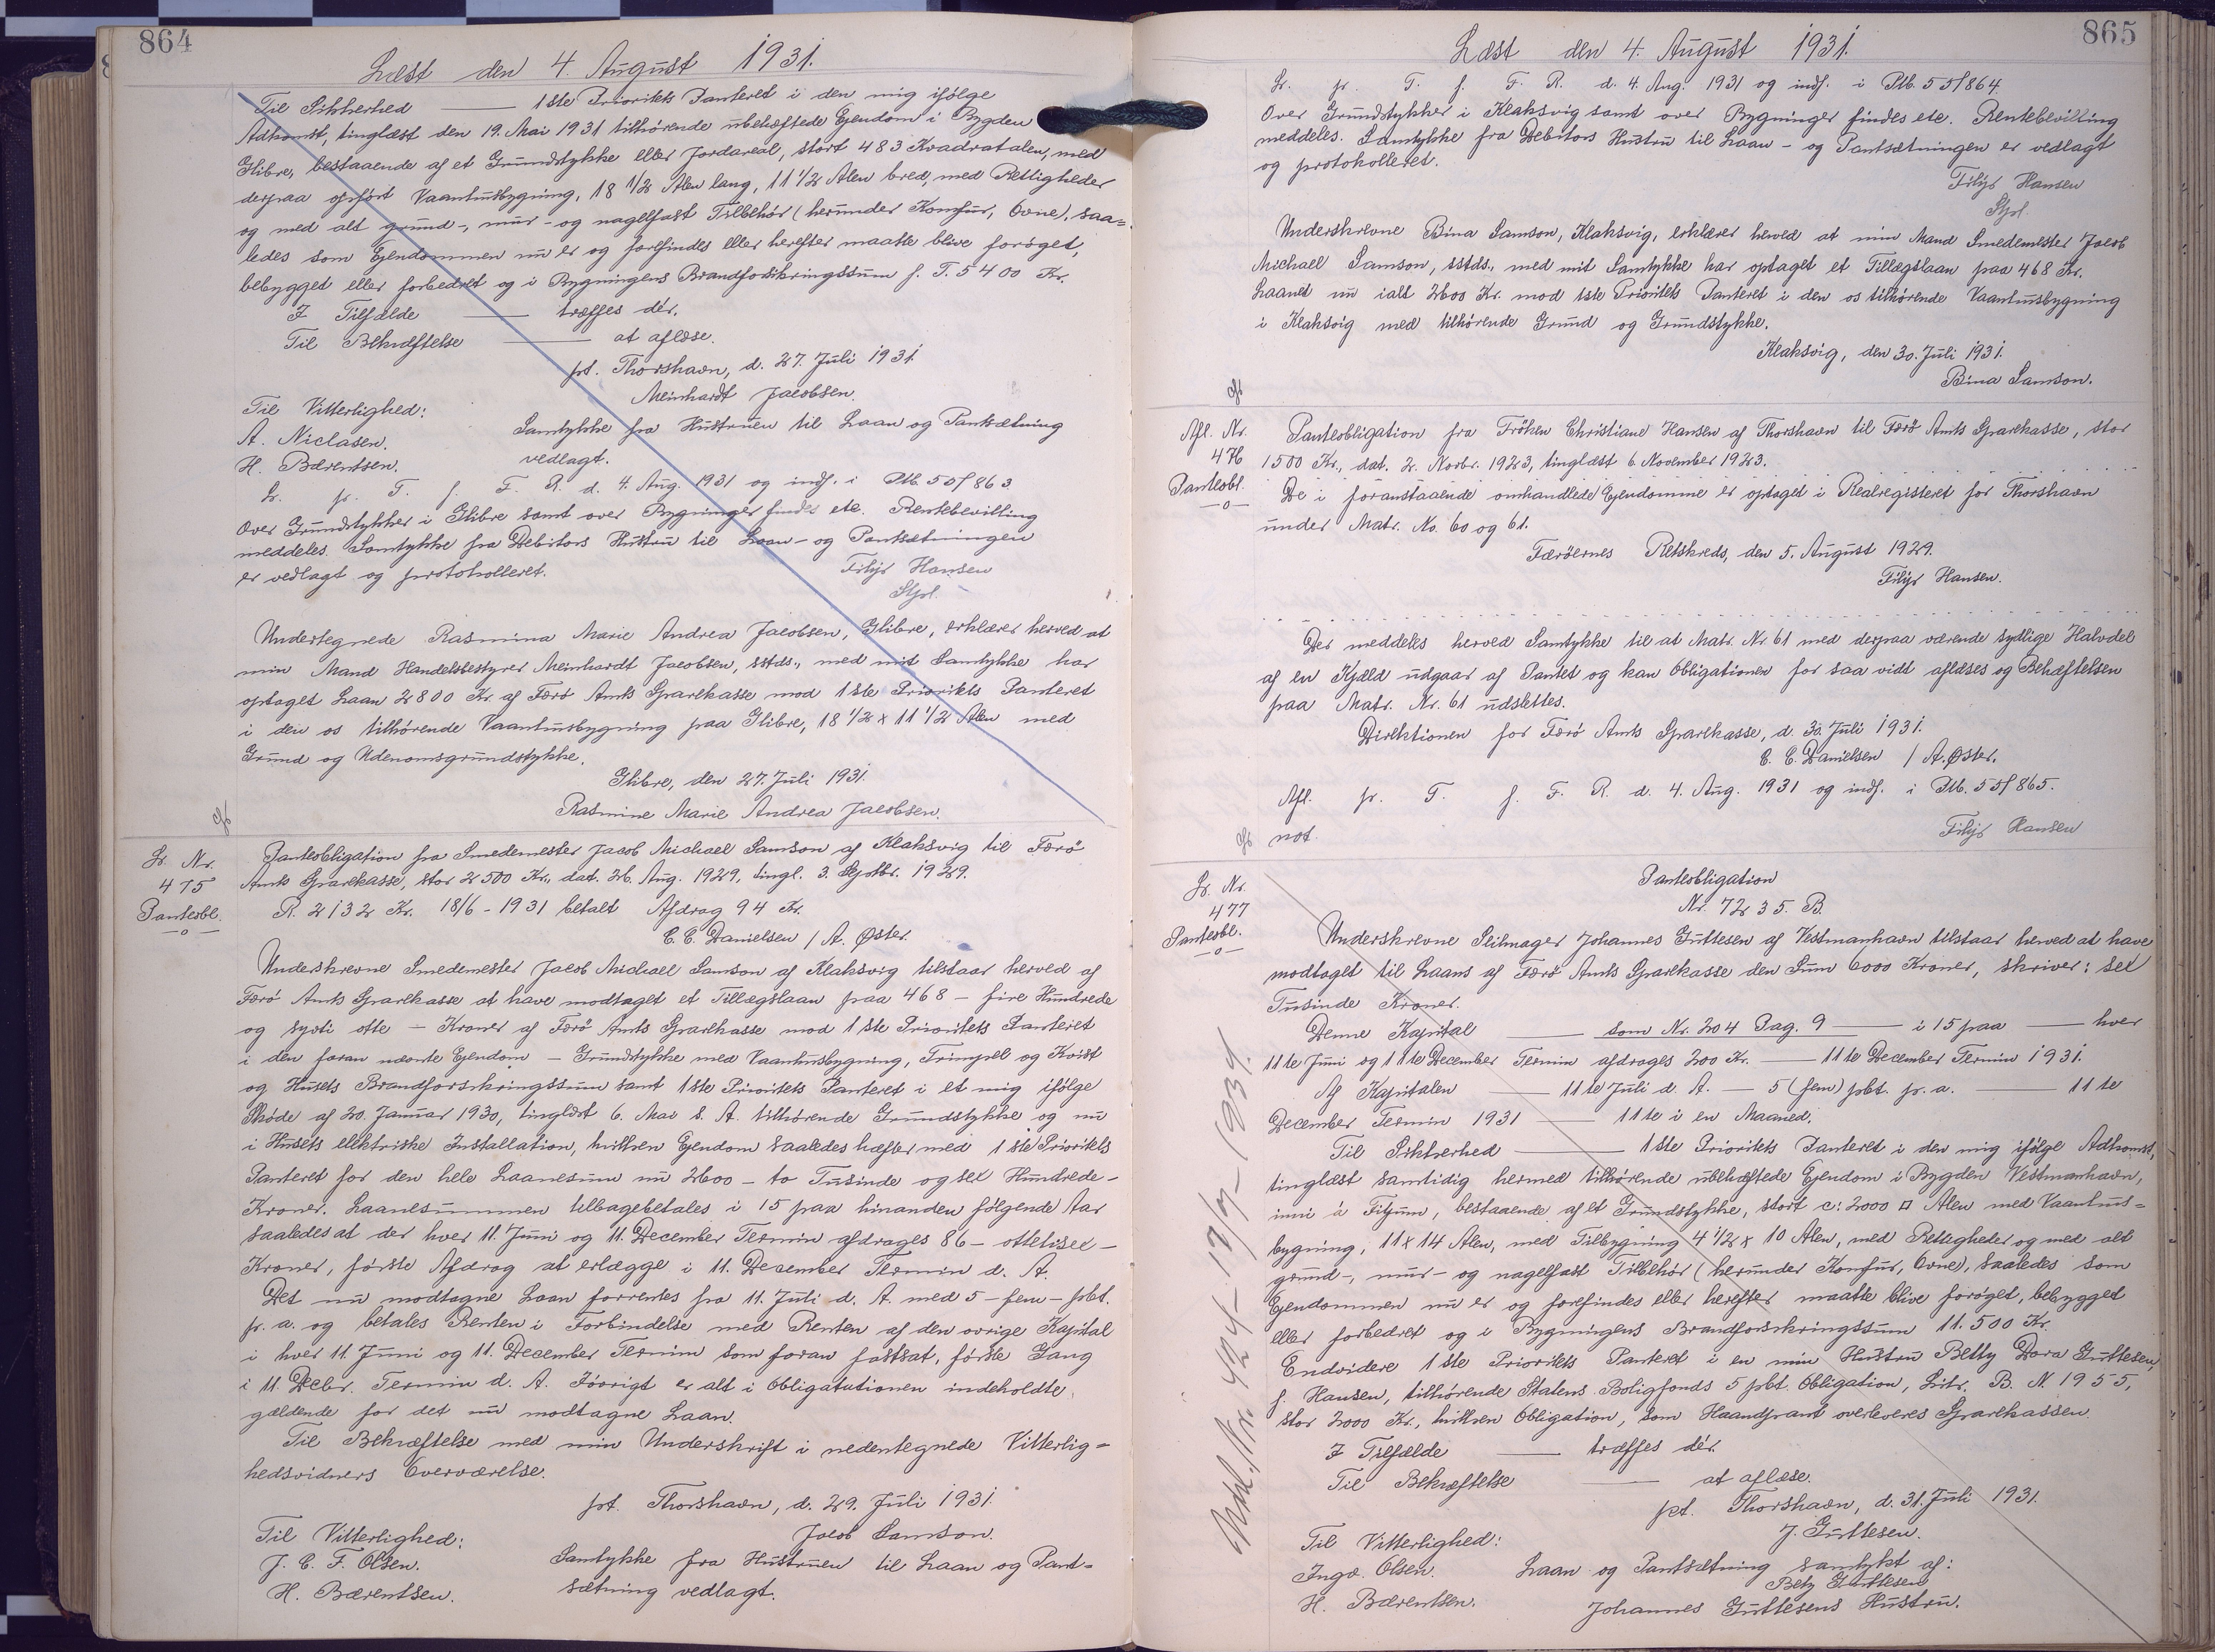 864
Læst den 4. August 1931.
Til Sikkerhed — 1ste Prioritets Panteret i den mig ifølge
Adkomst, tinglæst den 19. Mai 1931 tilhørende ubehæftede Ejendom i Bygden
Glibre, bestaaende af et Grundstykke eller Jordareal, stort 483 Kvadratalen, med
derpaa opført Vaaningsbygning, 18 1/2 Alen lang, 11 1/2 Alen bred, med Rettigheder
og med alt grund-, mur- og nagelfast Tilbehør (herunder Komfur, Ovne), saa=
ledes som Ejendommen nu er og forefindes eller herefter maatte blive forøget,
bebygget eller forbedret og i Bygningens Brandforsikringssum f. T. 5400 Kr.
I Tilfælde — træffes dér.
Til Bekræftelse — at aflæse.
pt. Thorshavn, d. 27. Juli 1931.
Meinhardt Jacobsen.
Til Vitterlighed:
A. Niclasen.
H. Bærentsen.
Samtykke fra Hustruen til Laan og Pantsætning
vedlagt.
Lr. pr. T. f. F. R. d. 4. Aug. 1931 og indf. i Ptb. 55f 863
Over Grundstykker i Glibre samt over Bygninger findes etc. Rentebevilling
meddeles. Samtykke fra Debitors Hustru til Laan- og Pantsætningen
er vedlagt og protokolleret.
Filip Hansen
Stpl.
Undertegnede Rasmina Marie Andrea Jacobsen, Glibre, erklærer herved at
min Mand Handelsbestyrer Meinhardt Jacobsen, sstds., med mit Samtykke har
optaget Laan 2800 Kr. af Færø Amts Sparekasse mod 1ste Prioritets Panteret
i den os tilhørende Vaanhusbygning paa Glibre, 18 1/2 x 11 1/2 Alen med
Grund og Udenomsgrundstykke.
Glibre, den 27. Juli 1931.
Rasmine Marie Andrea Jacobsen.
Lr. Nr.
475
Panteobl.
—o—
Panteobligation fra Smedemester Jacob Michael Samson af Klaksvig til Færø
Amts Sparekasse, stor 2500 Kr., dat. 26. Aug. 1929, tingl. 3. Septbr. 1929.
R. 2132 Kr. 18/6 - 1931 betalt Afdrag 94 Kr.
C. C. Danielsen / A. Øster.
Underskrevne Smedemester Jacob Michael Samson af Klaksvig tilstaar herved af
Færø Amts Sparekasse at have modtaget et Tillægslaan paa 468 — fire Hundrede
og syvti otte — Kroner af Færø Amts Sparekasse mod 1ste Prioritets Panteret
i den foran nævnte Ejendom — Grundstykke med Vaanhusbygning, Trimpel og Kvist
og Husets Brandforsikringssum samt 1ste Prioritets Panteret i et mig ifølge
Skøde af 20. Januar 1930, tinglæst 6. Mai s. A. tilhørende Grundstykke og nu
i Husets elektriske Installation, hvilken Ejendom saaledes hæfter med 1ste Prioritets
Panteret for den hele Laanesum nu 2600 — to Tusinde og sex Hundrede —
Kroner. Laanesummen tilbagebetales i 15 paa hinanden følgende Aar
saaledes at der hver 11. Juni og 11. December Termin afdrages 86 — ottetisex —
Kroner, første Afdrag at erlægge i 11. December Termin d. A.
Det nu modtagne Laan forrentes fra 11. Juli d. A. med 5 — fem — pbt.
pr. a. og betales Renten i Forbindelse med Renten af den øvrige Kapital
i hver 11. Juni og 11. December Termin som foran fastsat, første Gang
i 11. Decbr. Termin d. A. Iøvrigt er alt i Obligatutionen indeholdte
gældende for det nu modtagne Laan.
Til Bekræftelse med min Underskrift i nedentegnede Vitterlig=
hedsvidners Overværelse.
pt. Thorshavn, d. 29. Juli 1931.
Jacob Samson.
Til Vitterlighed:
J. C. F. Olsen.
H. Bærentsen.
Samtykke fra Hustruen til Laan og Pant=
sætning vedlagt.
865
Læst den 4. August 1931.
Lr. pr. T. f. F. R. d. 4. Aug. 1931 og indf. i Ptb. 55f 864.
Over Grundstykker i Klaksvig samt over Bygninger findes etc. Rentebevilling
meddeles. Samtykke fra Debitors Hustru til Laan- og Pantsætningen er vedlagt
og protokolleret.
Filip Hansen
Stpl.
Underskrevne Bina Samson, Klaksvig, erklærer herved at min Mand Smedemester Jacob
Michael Samson, sstds., med mit Samtykke har optaget et Tillægslaan paa 468 Kr.
Laanet nu ialt 2600 Kr. mod 1ste Prioritets Panteret i den os tilhørende Vaanhusbygning
i Klaksvig med tilhørende Grund og Grundstykke.
Klaksvig, den 30. Juli 1931.
Bina Samson.
Afl. Nr.
476
Panteobl.
—o—
Panteobligation fra Frøken Christiane Hansen af Thorshavn til Færø Amts Sparekasse, stor
1500 Kr., dat. 2. Novbr. 1923, tinglæst 6. November 1923.
De i foranstaaende omhandlede Ejendomme er optaget i Realregisteret for Thorshavn
under Matr. No. 60 og 61.
Færøernes Retskreds, den 5. August 1929.
Filip Hansen.
Der meddeles herved Samtykke til at Matr. Nr. 61 med derpaa værende sydlige Halvdel
af en Kjæld udgaar af Pantet og kan Obligationen for saa vidt aflæses og Behæftelsen
paa Matr. Nr. 61 udslettes.
Direktionen for Færø Amts Sparekasse, d. 30. Juli 1931.
C. C. Danielsen / A. Øster.
Afl. pr. T. f. F. R. d. 4. Aug. 1931 og indf. i Ptb. 55f 865.
not.
Filip Hansen
Lr. Nr.
477
Panteobl.
—o—
Panteobligation
Nr. 7235. B.
Underskrevne Seilmager Johannes Guttesen af Vestmanhavn tilstaar herved at have
modtaget til Laans af Færø Amts Sparekasse den Sum 6000 Kroner, skriver: sex
Tusinde Kroner.
Denne Kapital — som Nr. 204 Pag. 9 — i 15 paa — hver
11te Juni og 11te December Termin afdrages 200 Kr. — 11te December Termin 1931.
Af Kapitalen — 11te Juli d. A. — 5 (fem) pbt. pr. a. — 11te
December Termin 1931 — 11te i en Maaned.
Til Sikkerhed — 1ste Prioritets Panteret i den mig ifølge Adkomst,
tinglæst samtidig hermed tilhørende ubehæftede Ejendom i Bygden Vestmanhavn,
inni á Fitjum, bestaaende af et Grundstykke, stort c: 2000 □ Alen med Vaanhus=
bygning, 11 x 14 Alen, med Tilbygning 4 1/2 x 10 Alen, med Rettigheder og med alt
grund-, mur- og nagelfast Tilbehør (herunder Komfur, Ovne), saaledes som
Ejendommen nu er og forefindes eller herefter maatte blive forøget, bebygget
eller forbedret og i Bygningens Brandforsikringssum 11.500 Kr.
Endvidere 1ste Prioritets Panteret i en min Hustru Betty Dora Guttesen,
f. Hansen, tilhørende Statens Boligfonds 5 pbt. Obligation, Litr. B. N. 1955,
stor 2000 Kr., hvilken Obligation, som Haandpant overleveres Sparekassen.
I Tilfælde — træffes dér.
Til Bekræftelse — at aflæse.
pt. Thorshavn, d. 31. Juli 1931.
J. Guttesen.
Til Vitterlighed:
Ingv. Olsen.
H. Bærentsen.
Laan og Pantsætning samtykt af:
Bety Guttesen
Johannes Guttesens Hustru.